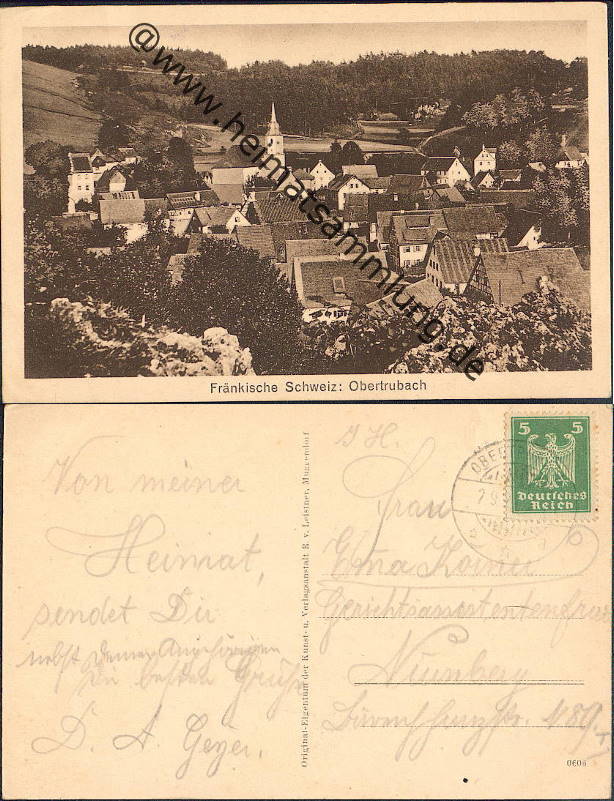 @www.heimatsammlung.de
Fränkische Schweiz: Obertrubach
Von meiner
Heimat,
sendet Dir
nebst Deinen Angehörigen
die besten Grüße
D. A. Geyer.
Original-Eigentum der Kunst- u. Verlagsanstalt R. v. Leistner, Muggendorf
5 5
Deutsches
Reich
Frau
Gerichtsassistentenfrau
Nürnberg
0606